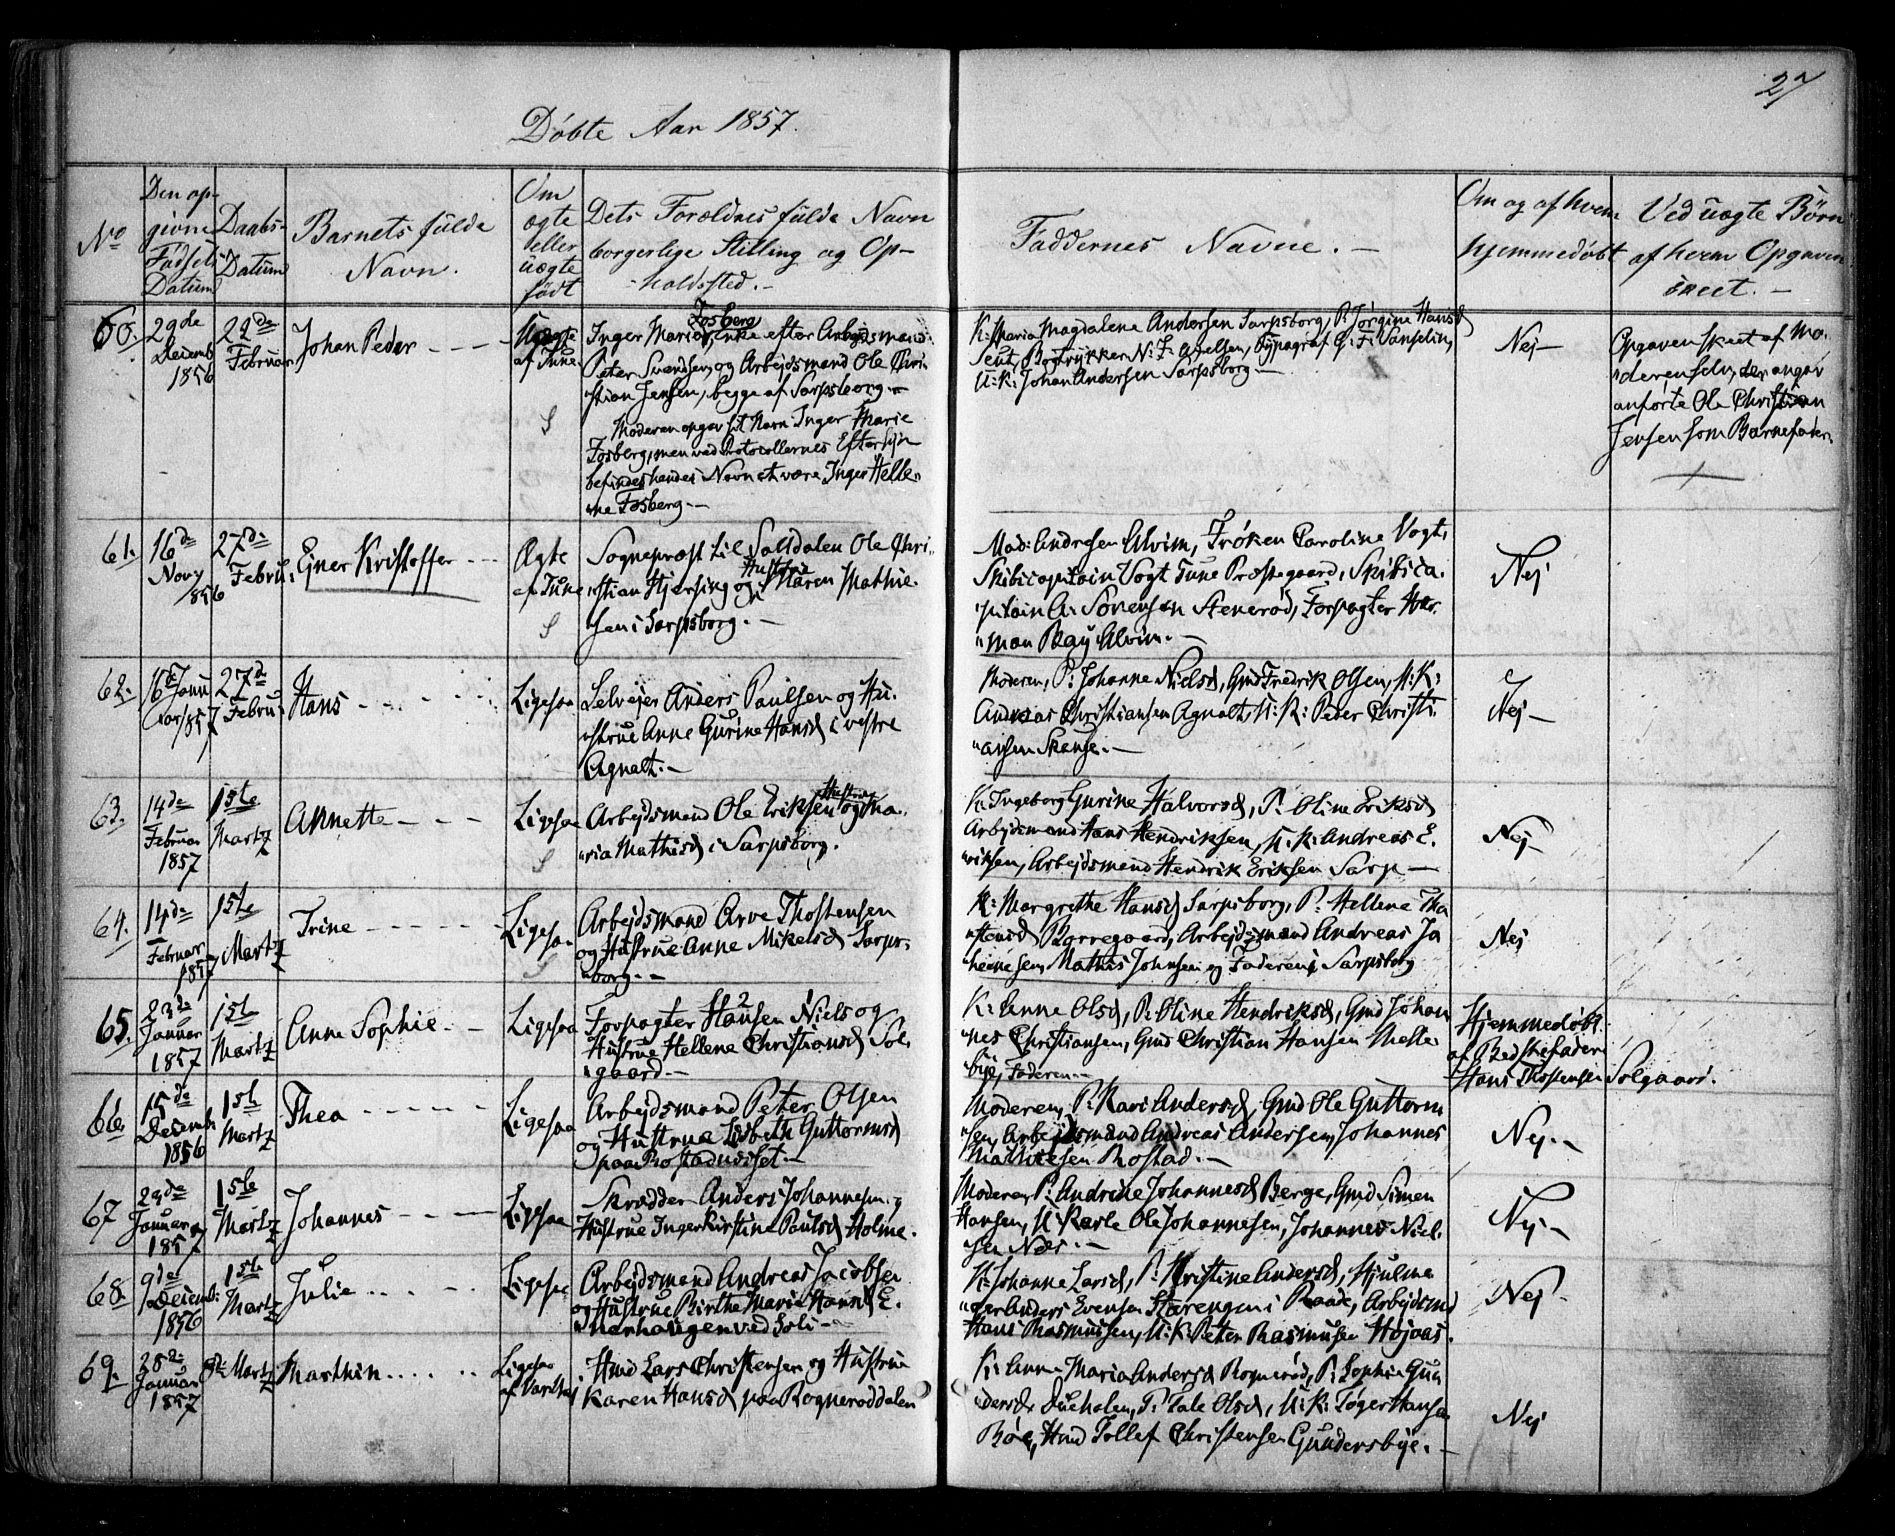 27
Døbte Aar 1857.
No
Den op-
givne
Fødsels
Datum
Daabs-
Datum
Barnets fulde
Navn.
Om
ægte
eller
uægte
født
Dets Forældres fulde Navn
borgerlige Stilling og Op-
holdssted.-
Faddernes Navne.-
Om og af hvem
hjemmedøbt
Ved uægte Børn
af hvem Opgaven
skeet.-
60.
29de
Decemb
1856
22de
Februar
Johan Peder
Uægte
af Tune
S
Inger Marie Fosberg, Enke efter Arbejdsmand
Peter Svendsen, og Arbejdsmand Ole Chri-
stian Jensen, begge af Sarpsborg.-
Moderen opgav sit Navn Inger Marie
Fosberg, men ved Protocollernes Eftersyn
befindes hendes Navn at være Inger Helle-
ne Fosberg.-
K: Maria Magdalena Andersen Sarpsborg, P: Jørgine Hansd
Bogtrykker N: F: Axelsen, Typograf G: F:
U: K: Johan Andersen Sarpsborg-
Nej-
Opgaven skeet af Mo-
deren selv, der angav
anførte Ole Christian
Jensen som Barnefader.
61.
16de
Novr
1856
27de
Febru:
Ejner Kristoffer
Ægte
af Tune
S
Sognepræst til Saltdalen Ole Chri-
stian Hjersing og Hustrue Maren Mathie-
sen i Sarpsborg.-
Mad: Andresen Alvim, Frøken Caroline Vogt,
Skibicapitain Vogt Tune Præstegaard, Skibica-
pitain A: Sørensen Stenerød, Forpagter Her-
man Bay Alvim.-
Nej
62.
16de Janu
ar 1857
27de
Febru
Hans
Ligesaa
Selvejer Anders Paulsen og Hu-
strue Anne Gurine Hansd i vestre
Agnalt.-
Moderen, P: Johanne Nielsd, Gmd Fredrik Olsen, U: K:
Andreas Christiansen Agnalt, U: K: Peder Christi-
ansen Skanse.-
Nej-
63.
14de
Februar
1857
1ste
Martz
Annette
Ligesaa
S
Arbejdsmand Ole Eriksen og Hustrue Ma-
ria Mathisd i Sarpsborg.
K: Ingeborg Gurine Halvorsd, P: Oline Eriksd
Arbejdsmand Hans Hendriksen, U: K: Andreas E-
riksen, Arbejdsmand Hendrik Eriksen Sarp-
Nej-
64.
14de
Februar
1857
1ste
Martz
Trine
Ligesaa
S
Arbejdsmand Arve Thostensen
og Hustrue Anne Mikelsd Sarps-
borg.-
K: Margrethe Hansd Sarpsborg, P: Hellene Tho-
stensd Borregaard, Arbejdsmand Andreas Jo
hannesen, Mathis Johnsen og Faderen, Sarpsborg
Nej
65.
23de
Januar
1857
1ste
Martz
Anne Sophie
Ligesaa
Forpagter Hansen Niels og
Hustrue Hellene Christiansd Sol-
gaard.-
K: Anne Olsd, P: Oline Hendriksd, Gmd Johan
nes Christiansen, Gmd Christian Hansen Melle-
bye, Faderen.-
Hjemmedøbt
af Bedstefader
Hans Thostensen Solgaard.
66.
15de
Decemb
1856
1ste
Martz
Thea
Ligesaa
Arbejdsmand Peter Olsen
og Hustrue Lisbeth Guttormsd
paa Rostadnæsset.-
Moderen, P: Kari Andersd, Gmd Ole Guttorm
sen, Arbejdsmand Andreas Andersen, Johannes
Mathiesen Rostad.-
Nej.-
67
29de
Januar
1857
1ste
Martz
Johannes
Ligesaa
Skrædder Anders Johannesen og
Hustrue Inger Kirstine Paulsd Holme.
Moderen, P: Andrine Johannesd Berge, Gmd Simen
Hansen, U: Karle Ole Johannesen, Johannes Niel-
sen Næs.-
Nej.-
68.
9de
Decemb:
1856
1ste
Martz
Julie
Ligesaa
Arbejdsmand Andreas Jacobsen
og Hustrue Birthe Marie Hansd E-
nerhaugen ved Soli-
K: Johanne Larsd, P: Kristine Andersd, Hjulma
ger Anders Evensen Starengen i Raade, Arbejdsmd
Hans Rasmussen, U: K: Peter Rasmusen Højaas.
Nej-
69.
28de
Januar
1857
Martz
Marthin
Ligesaa
af Varteig
Hmd Lars Christensen og Hustrue
Karen Hansd paa Rogneroddalen
K: Anne Maria Andersd Rognerød, P: Sophie Gun
dersd Duehalen, P: Tale Olsd, U: K: Tøger Hansen
Bøe, Hmd Tollef Christensen Gundersbye.-
Nej